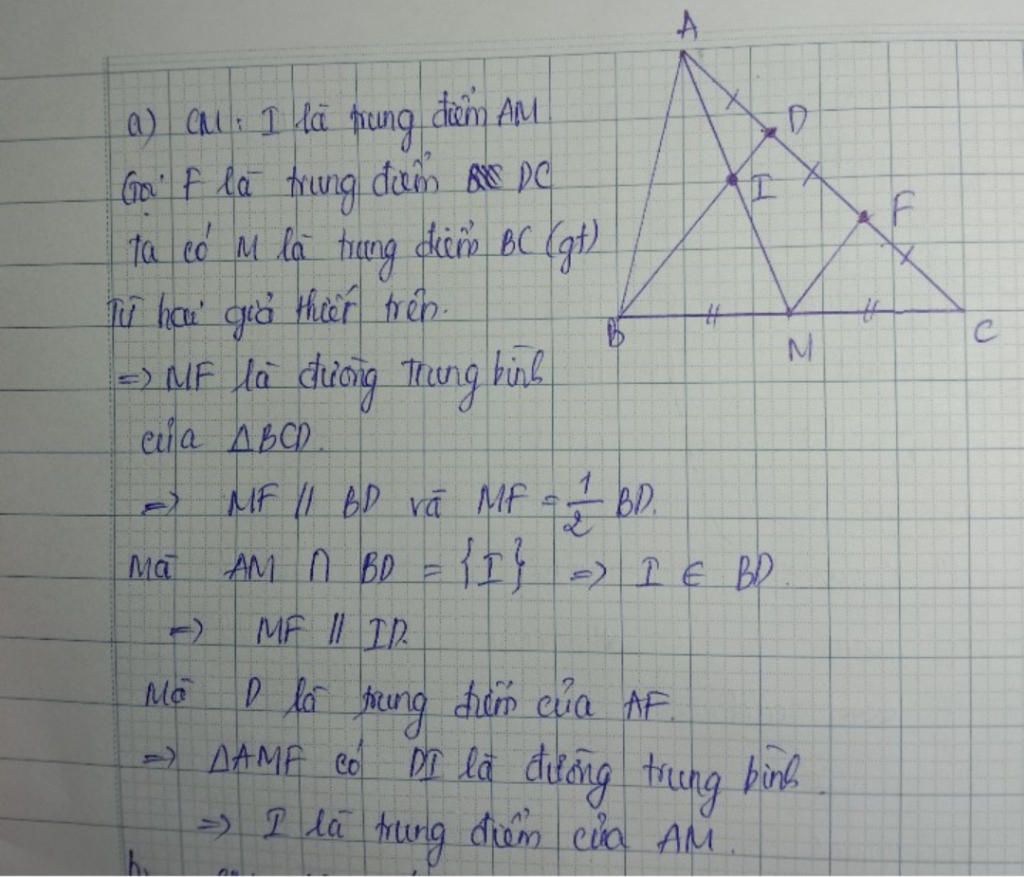 a) CM: I là trung điểm AM
Gọi F là trung điểm DC
ta có M là trung điểm BC (gt)
Từ hai giả thiết trên.
=> MF là đường trung bình
của ΔBCD.
=> MF // BD và MF = 1/2 BD.
Mà AM ∩ BD = {I} => I ∈ BD.
=> MF // ID.
Mà D là trung điểm của AF.
=> ΔAMF có DI là đường trung bình.
=> I là trung điểm của AM.
A
D
I
F
B
M
C